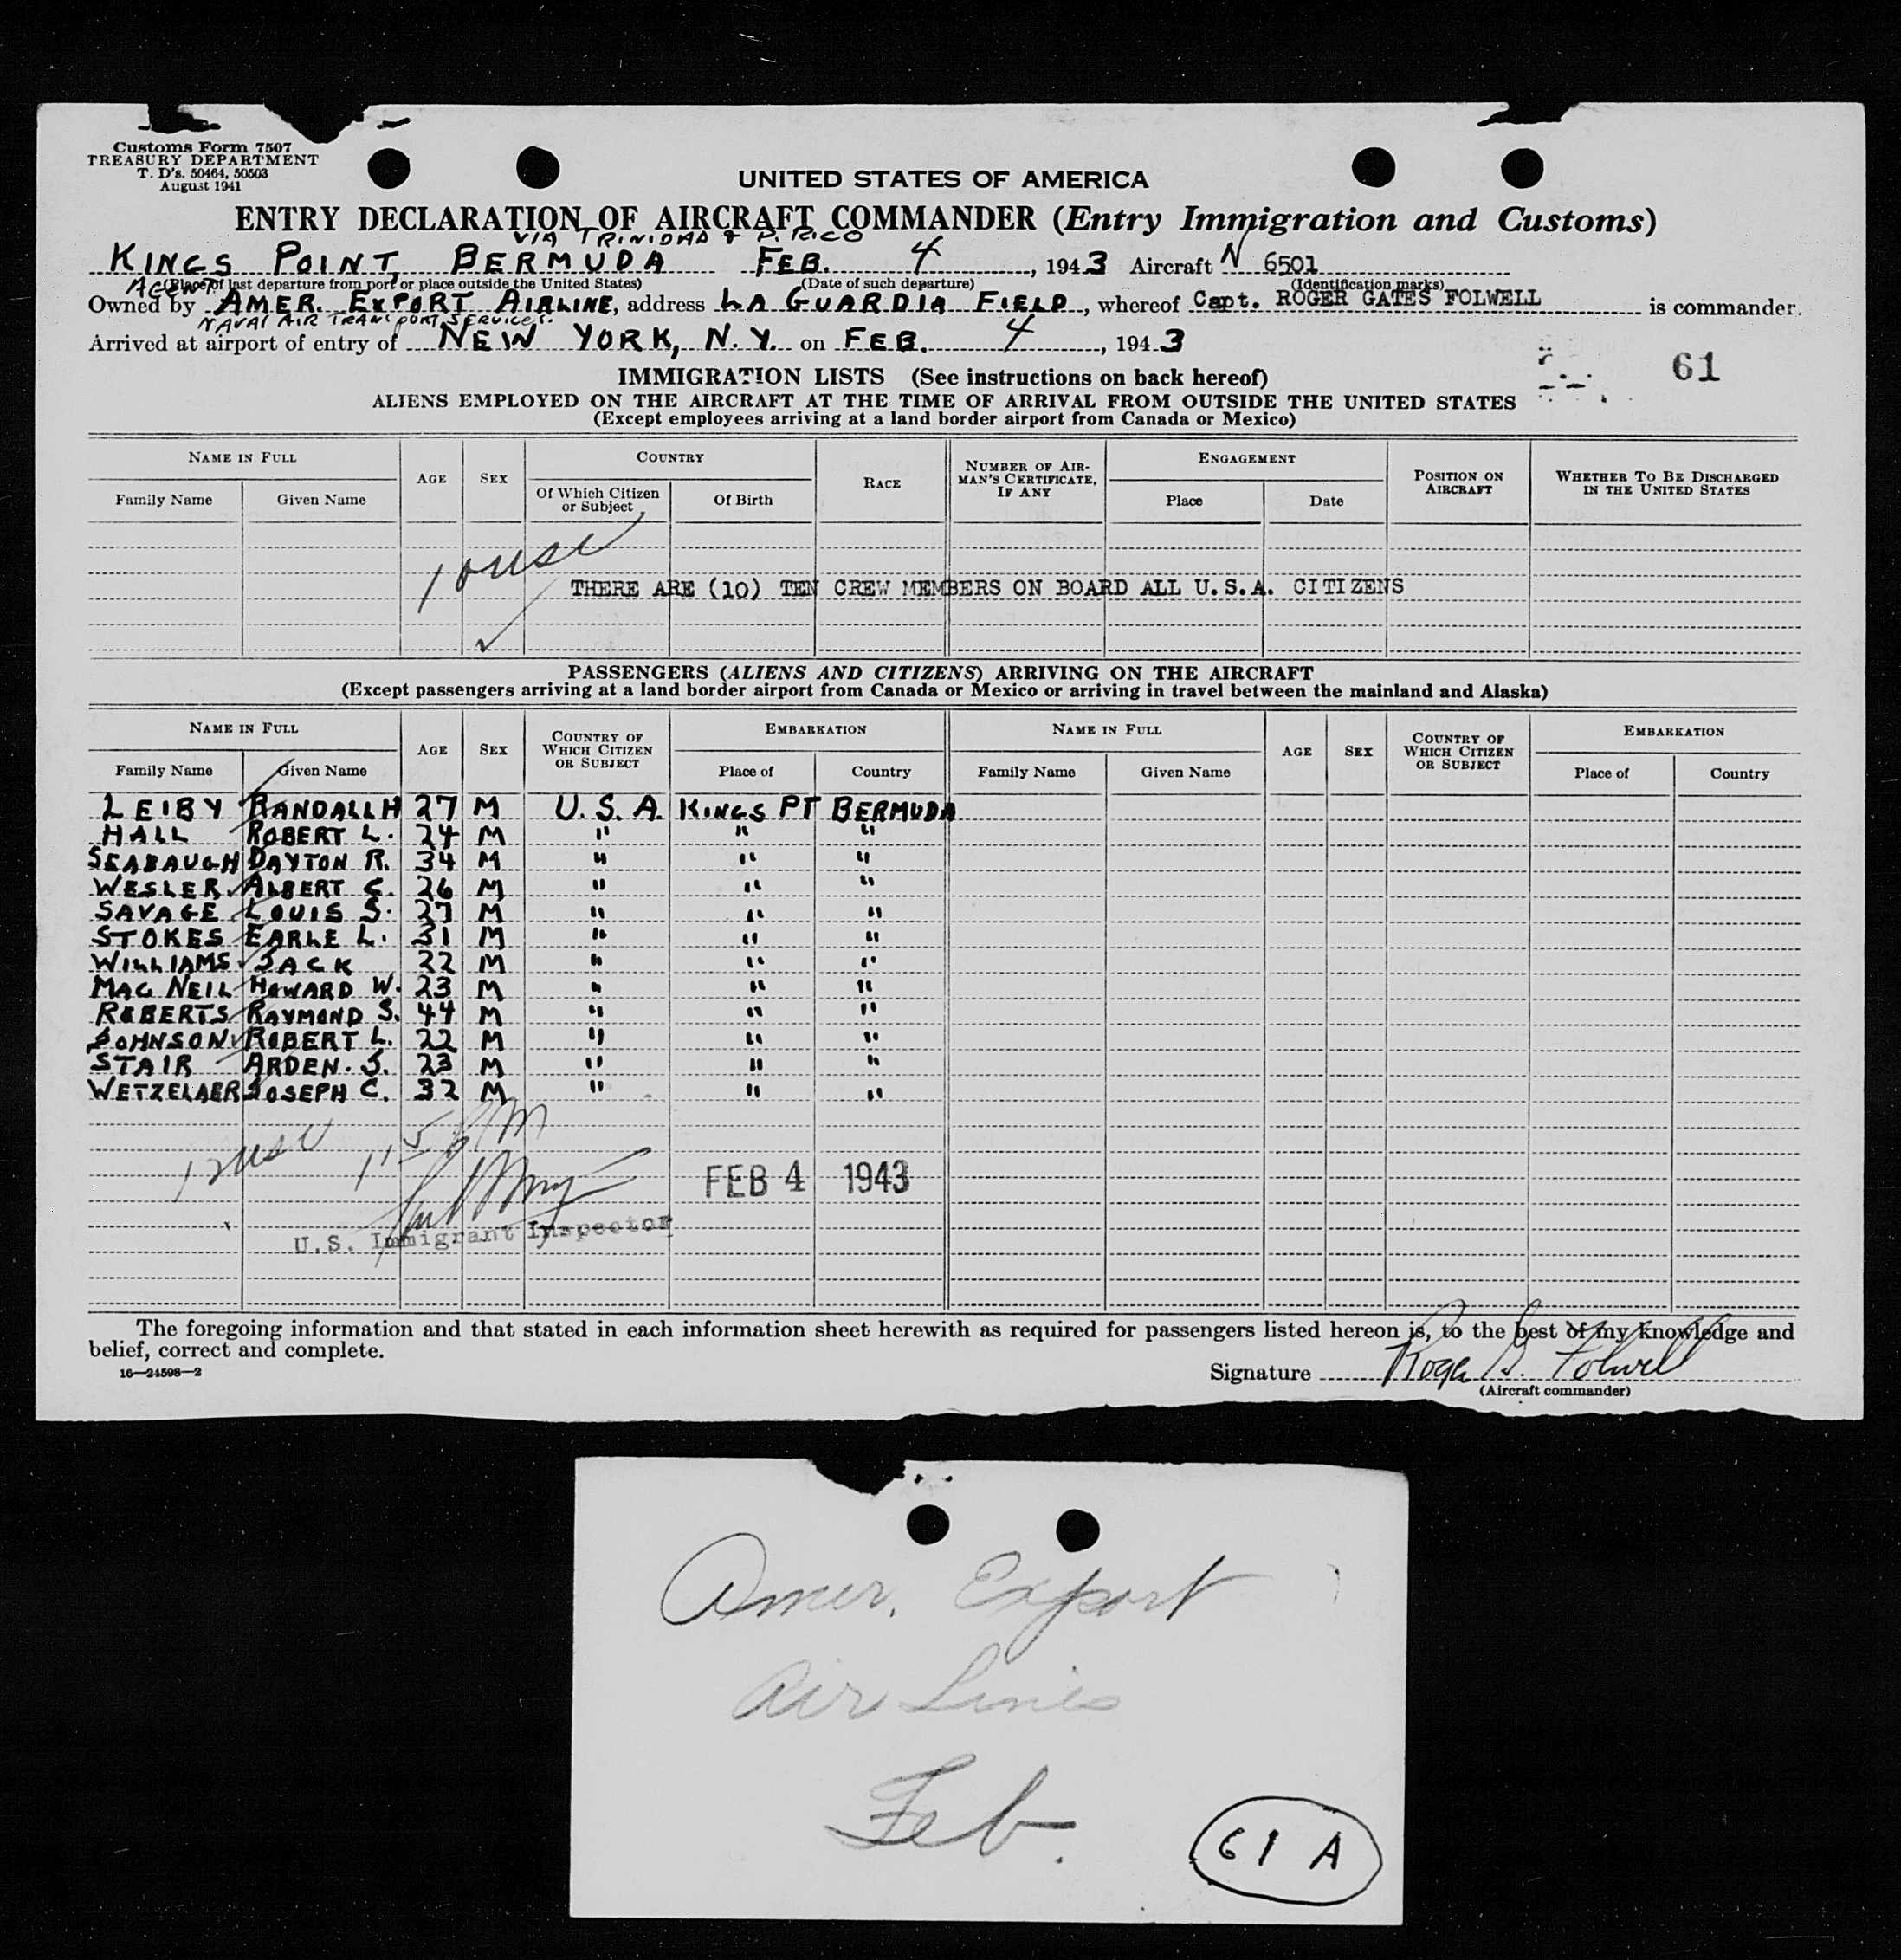 Customs Form 7507
TREASURY DEPARTMENT
T. D's. 50464, 50503
August 1941
UNITED STATES OF AMERICA
ENTRY DECLARATION OF AIRCRAFT COMMANDER (Entry Immigration and Customs)
VIA TRINIDAD & P. RICO
KINGS POINT, BERMUDA FEB. 4, 1943 Aircraft N 6501
(Place of last departure from port or place outside the United States) (Date of such departure) (Identification marks)
AGENT
Owned by AMER. EXPORT AIRLINE, address LA GUARDIA FIELD, whereof Capt. ROGER GATES FOLWELL is commander.
NAVAL AIR TRANSPORT SERVICES.
Arrived at airport of entry of NEW YORK, N.Y. on FEB. 4, 1943
61
IMMIGRATION LISTS (See instructions on back hereof)
ALIENS EMPLOYED ON THE AIRCRAFT AT THE TIME OF ARRIVAL FROM OUTSIDE THE UNITED STATES
(Except employees arriving at a land border airport from Canada or Mexico)
NAME IN FULL AGE SEX COUNTRY RACE NUMBER OF AIRMAN'S CERTIFICATE, IF ANY ENGAGEMENT POSITION ON AIRCRAFT WHETHER TO BE DISCHARGED IN THE UNITED STATES
Family Name Given Name Of Which Citizen or Subject Of Birth Place Date
10 USC
THERE ARE (10) TEN CREW MEMBERS ON BOARD ALL U.S.A. CITIZENS
PASSENGERS (ALIENS AND CITIZENS) ARRIVING ON THE AIRCRAFT
(Except passengers arriving at a land border airport from Canada or Mexico or arriving in travel between the mainland and Alaska)
NAME IN FULL AGE SEX COUNTRY OF WHICH CITIZEN OR SUBJECT EMBARKATION NAME IN FULL AGE SEX COUNTRY OF WHICH CITIZEN OR SUBJECT EMBARKATION
Family Name Given Name Place of Country Family Name Given Name Place of Country
LEIBY RANDALL H 27 M U.S.A. KINGS PT BERMUDA
HALL ROBERT L. 24 M " " "
SEABAUGH DAYTON R. 34 M " " "
WESLER ALBERT C. 26 M " " "
SAVAGE LOUIS S. 27 M " " "
STOKES EARLE L. 31 M " " "
WILLIAMS JACK 22 M " " "
MAC NEIL HOWARD W. 23 M " " "
ROBERTS RAYMOND S. 44 M " " "
JOHNSON ROBERT L. 22 M " " "
STAIR ARDEN. J. 23 M " " "
WETZELAER JOSEPH C. 32 M " " "
12 USC 1 15 PM
FEB 4 1943
U.S. Immigrant Inspector
The foregoing information and that stated in each information sheet herewith as required for passengers listed hereon is, to the best of my knowledge and
belief, correct and complete.
16—24598—2
Signature Roger G. Folwell
(Aircraft commander)
Amer. Export
Air Lines
Feb.
61 A